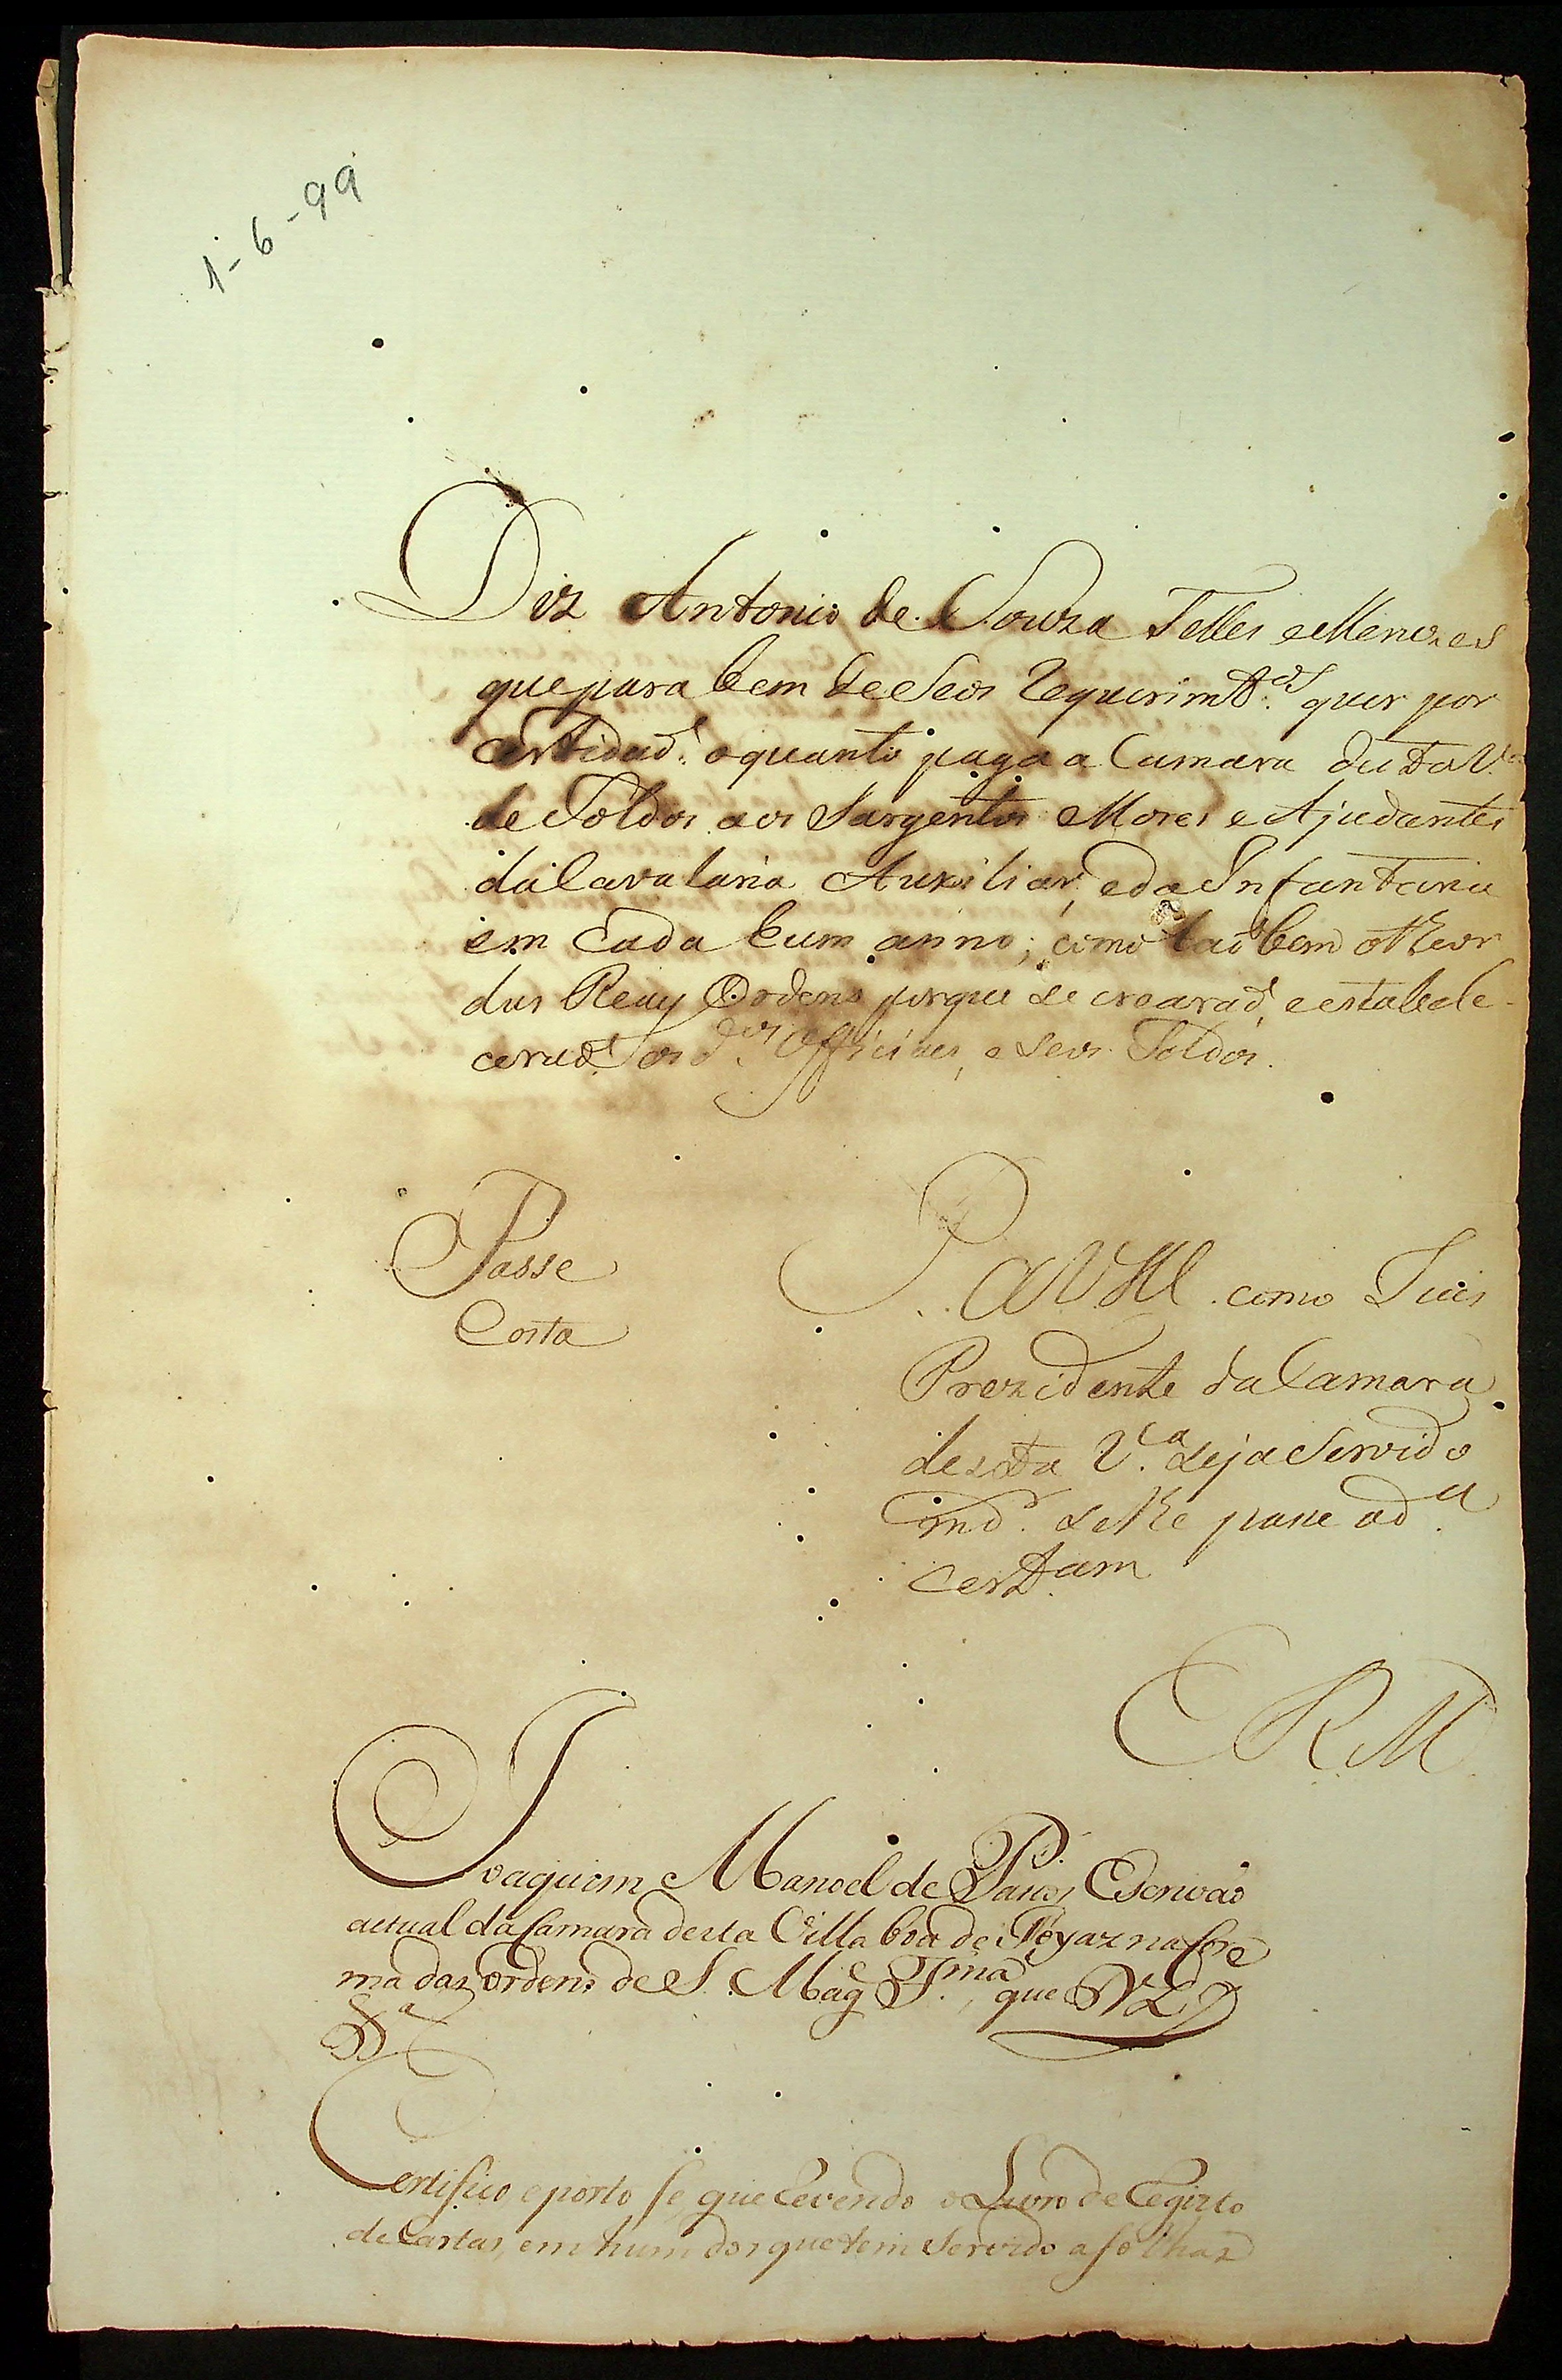 1-6-99
Diz Antonio de Souza Telles e Menezes
que para bem de Seos Requerim.tos quer por
certidaõ o quanto paga a Camara desta V.a
de Soldos aos Sargentos Mores e Ajudantes
da Cavalaria Auxiliar, e da Infantaria
em Cada hum anno; como taõbem o theor
das Reays Ordens porque se crearaõ, e estabele-
ceraõ os d.os Officiaes, e Seos Soldos.
Passe
Costa
P. a VM.ce como Juis
Prezidente da Camara
desta V.a seja Servido
md.r se lhe passe a d.a
certam
E R M
Joaquim Manoel de Passos Escrivaõ
actual da Camara desta Villa boa de Goyaz na for
ma das ordens de S. Mag.e F.ma, que D.s
g.a
Certifico e porto fé, que revendo o Livro de regizto
de Cartas, em hum dos que tem Servido a folhas